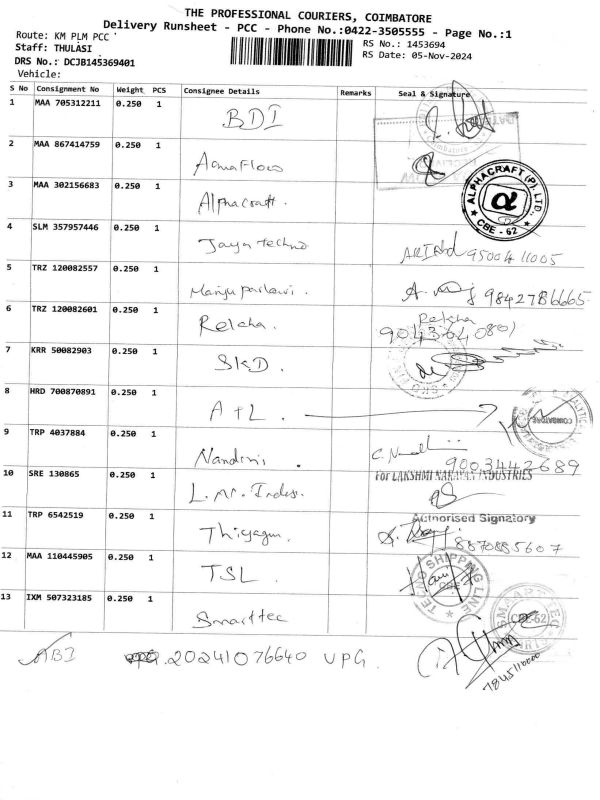 THE PROFESSIONAL COURIERS, COIMBATORE
Delivery Runsheet - PCC - Phone No.:0422-3505555 - Page No.:1
Route: KM PLM PCC
RS No.: 1453694
Staff: THULASI
RS Date: 05-Nov-2024
DRS No.: DCJB145369401
Vehicle:
S No Consignment No Weight PCS Consignee Details Remarks Seal & Signature
1 MAA 705312211 0.250 1 BDI
2 MAA 867414759 0.250 1 Aquaflows
3 MAA 302156683 0.250 1 Alphacraft.
ALPHACRAFT (P) LTD.
α
CBE - 62
4 SLM 357957446 0.250 1 Jaya techno
9500411005
5 TRZ 120082557 0.250 1
9842786665
6 TRZ 120082601 0.250 1 Rekha.
Rekha
7 KRR 50082903 0.250 1 SKD.
8 HRD 700870891 0.250 1 A+L.
COIMBATORE
9 TRP 4037884 0.250 1 Nandini.
9003442689
10 SRE 130865 0.250 1
For LAKSHMI NARAYAN INDUSTRIES
Authorised Signatory
11 TRP 6542519 0.250 1
8870885607
12 MAA 110445905 0.250 1 TSL.
SHIPPING LINE
CBE
13 IXM 507323185 0.250 1 Smarttec
CBE-62
ABI 20241076640 UPG.